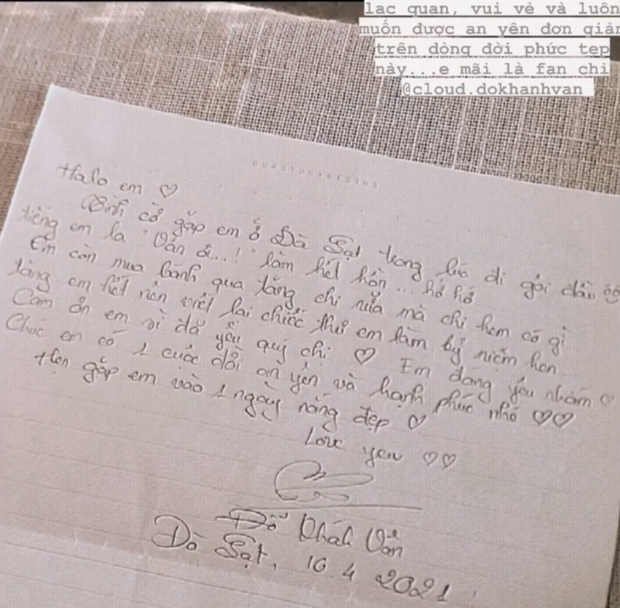 lạc quan, vui vẻ và luôn
muốn được an yên đơn giản
trên dòng đời phức tạp
này...e mãi là fan chị
@cloud.dokhanhvan
OURSTORYBEGINS
Halo em ♡
Tình cờ gặp em ở Đà Lạt trong lúc đi gội đầu
tiếng em la "Vân ơi...!" làm hết hồn... hớ hớ
Em còn mua bánh qua tặng chị nữa mà chị hem có gì
tặng em hết nên viết lại chiếc thư em làm kỷ niệm hen.
Cảm ơn em vì đã yêu quý chị ♡ Em đáng yêu nhắm ♡
Chúc em có 1 cuộc đời an yên và hạnh phúc nhó ♡♡
Hẹn gặp em vào 1 ngày nắng đẹp ♡
Love you ♡♡
Đỗ Khánh Vân
Đà Lạt, 16 4 2021